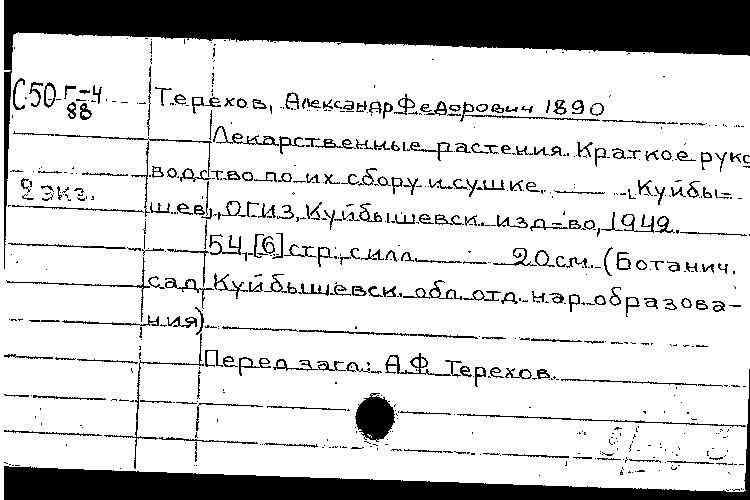 С50 Г-4 Терехов, Александр Федорович 1890
88
Лекарственные растения. Краткое руко
водство по их сбору и сушке. , Куйбы-
2 экз.
шев, ОГИЗ, Куйбышевск. изд-во, 1942.
54,[6]стр., с илл. 20см. (Ботанич.
сад Куйбышевск. обл. отд. нар. образова-
ния)
Перед загл.: А.Ф. Терехов.